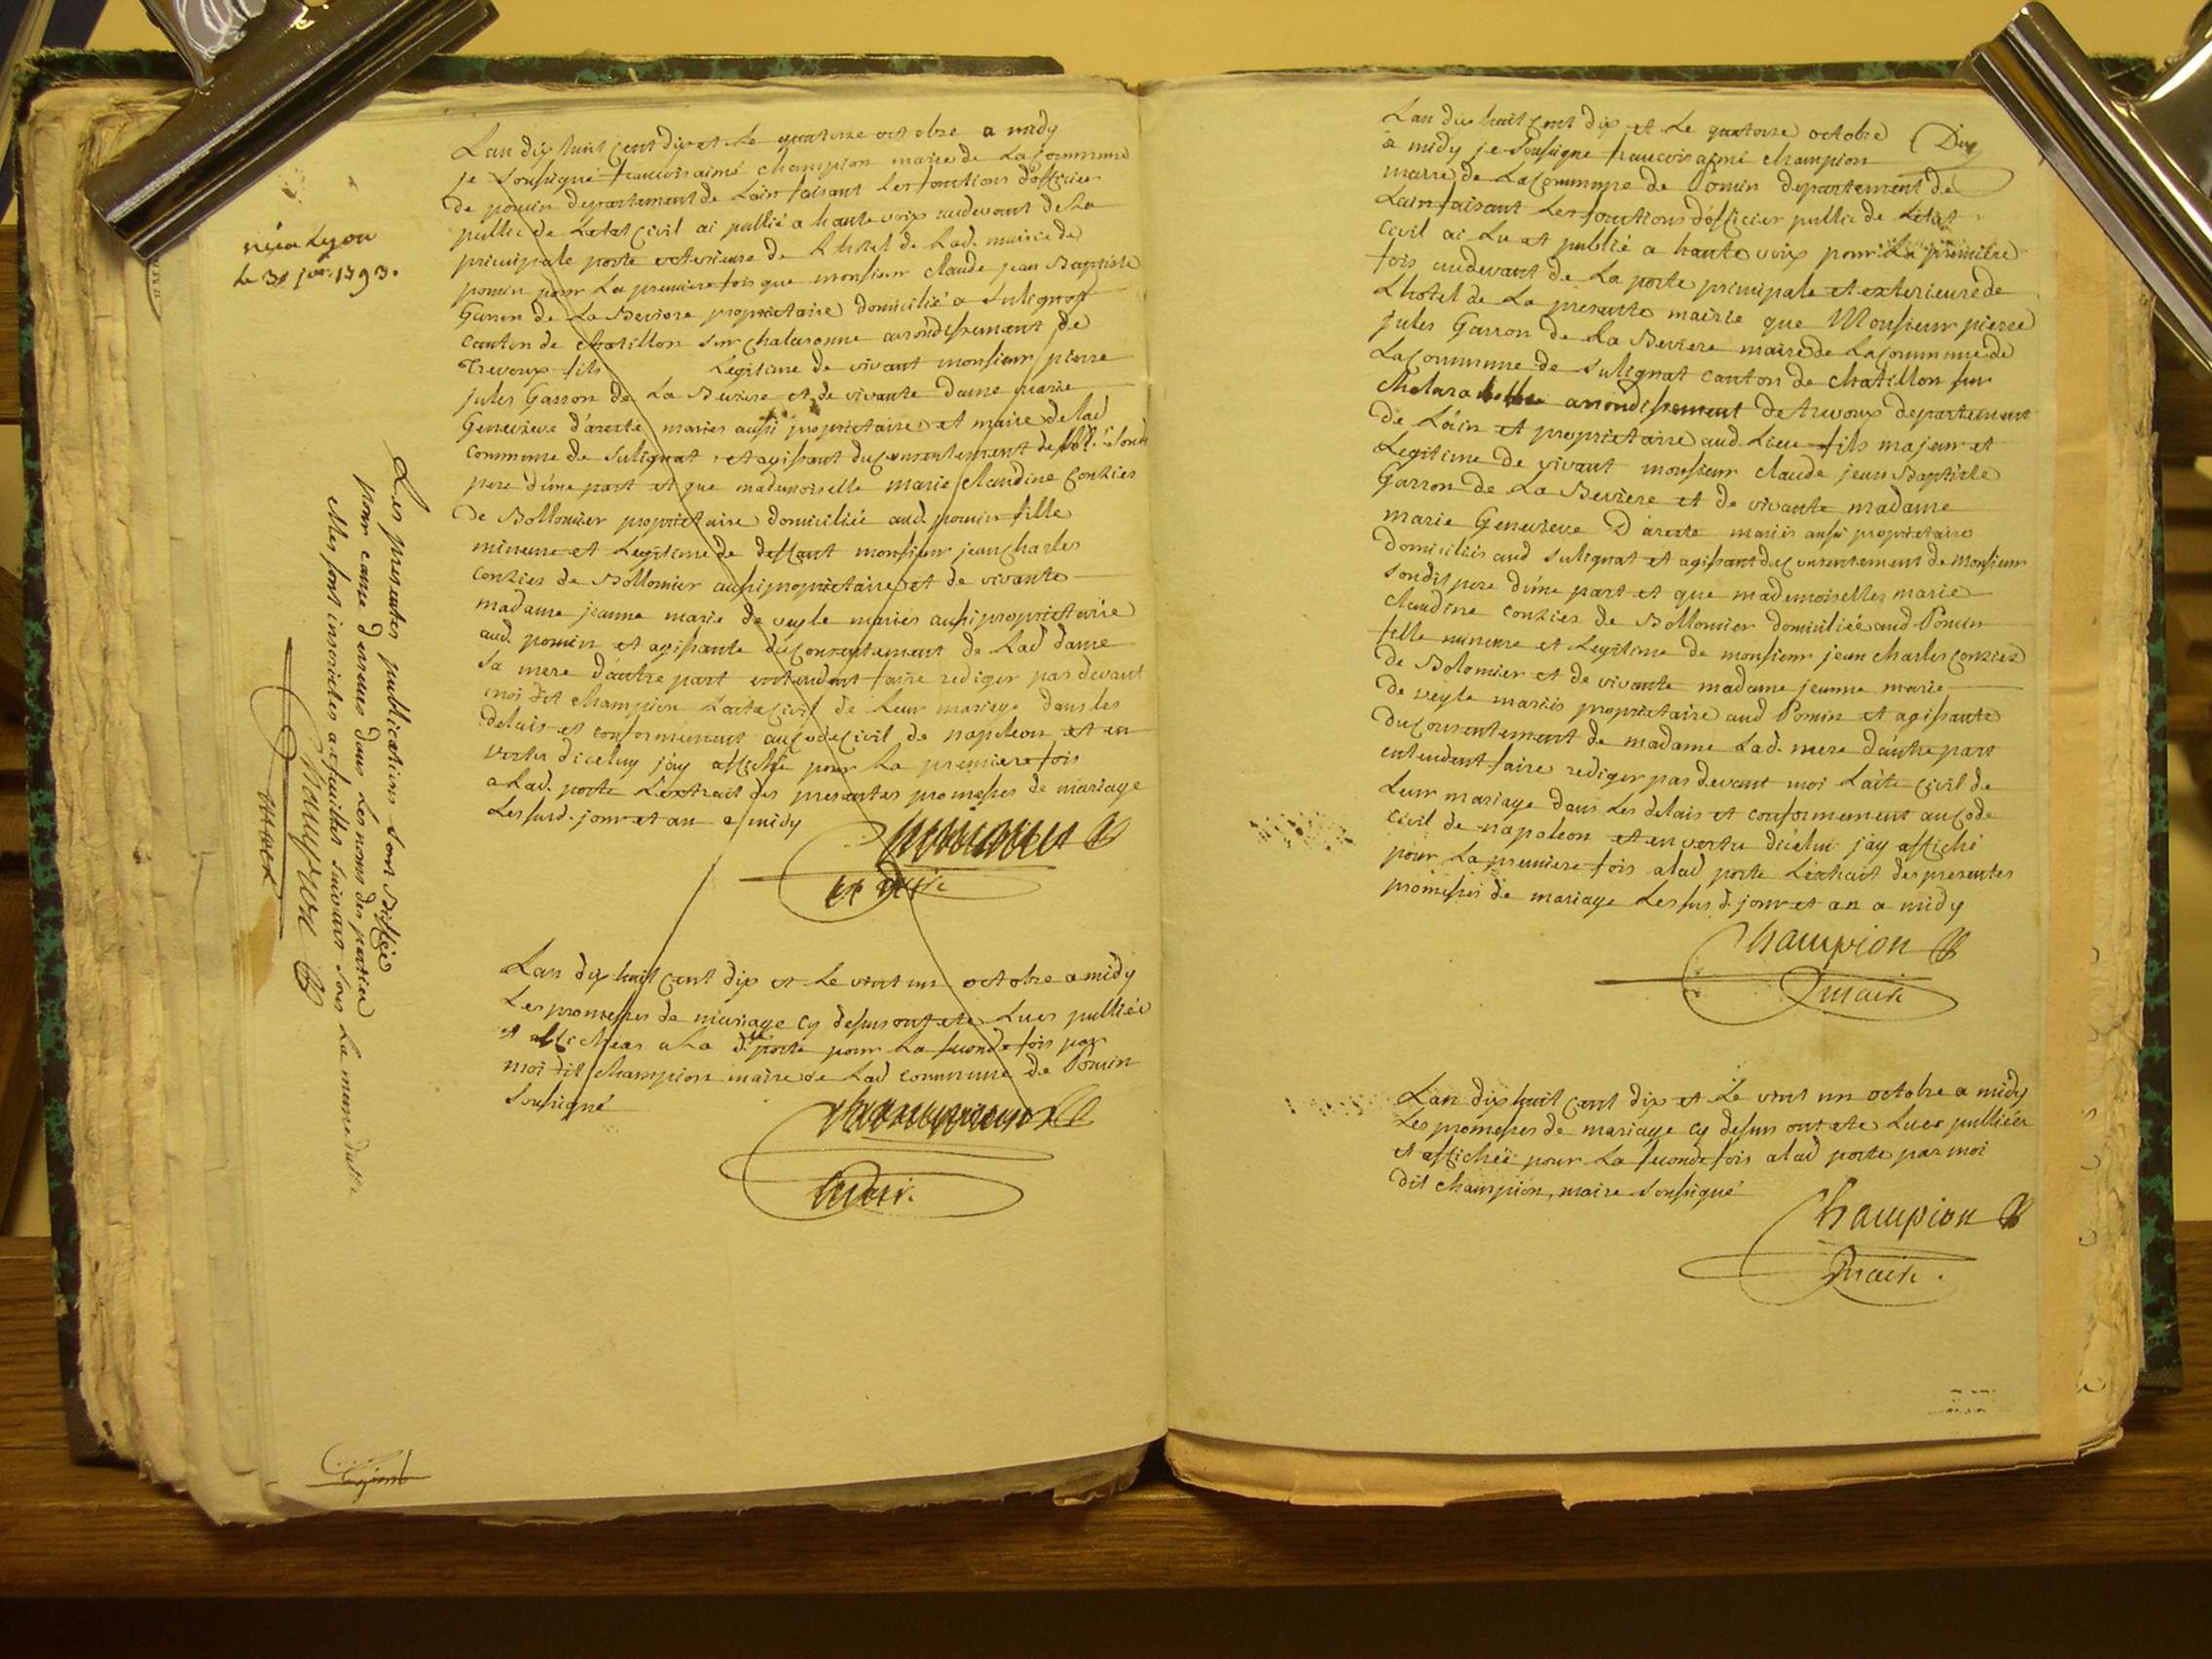 Lan dix huit cent dix et le quatorze octobre a midy
je soussigné francois aimé champion maire de la commune
de poncin departement de Lain faisant les fonctions d'officier
public de Letat civil ai publié a haute voix audevant de la
principale porte exterieure de L hotel de lad. mairie de
poncin pour La premiere fois que monsieur claude jean Baptiste
Garron de La Beviere proprietaire domicilié a Sulignat
canton de chatillon sur chalaronne arrondissement de
Trevoux fils legitime de vivant monsieur pierre
jules Garron de La Beviere et de vivante dame marie
Genevieve d'areste mariés aussi proprietaire et maire de lad
commune de Sulignat et agissant du consentement de
pere d'une part et que mademoiselle marie claudine Conzies
de Bollomier proprietaire domiciliée aud. poncin fille
mineure et Legitime de deffunt monsieur jean charles
conzies de Bollomier aussi proprietaire et de vivante
madame jeanne marie de veyle mariés aussi proprietaire
aud. poncin et agissante du consentement de Lad dame
sa mere d'autre part entendent faire rediger par devant
moi dit champion Lacte civil de Leur mariage dans les
delais et conformement au code civil de napoleon et en
vertu d'iceluy j'ay affiché pour La premiere fois
a Lad. porte L'extrait des presentes promesses de mariage
Les susd. jour et an a midy
Champion
maire
né a Lyon
le 30 janv. 1793.
Les presentes publications sont Biffée
pour cause d'erreur dans Les noms des parties
elles sont inscrittes au feuillet suivant sous La meme datte
Champion
maire
Lan dix huit cent dix et Le vint un octobre a midy
Les promesses de mariage cy dessus ont eté Lues publiées
et affichées a La d.te porte pour La seconde fois par
moi dit champion maire de Lad commune de Poncin
Soussigné
Champion
maire.
Lan dix huit cent dix et Le quatorze octobre
a midy je soussigne francois aimé champion
maire de La commune de Poncin departement de
Lain faisant Les fonctions d'officier public de Létat
civil ai Lu et publié a haute voix pour La premiere
fois audevant de La porte principale et exterieure de
L hotel de La presente mairie que Monsieur pierre
jules Garron de La Beviere maire de La commune de
La commune de Sulignat canton de chatillon sur
Chalaronne arrondissement de trevoux departement
de L'ain et proprietaire aud. Lieu fils majeur et
Legitime de vivant monsieur claude jean Baptiste
Garron de La Beviere et de vivante madame
marie Genevieve D'areste mariés aussi proprietaire
domiciliés aud Sulignat et agissant du consentement de Monsieur
sondit pere d'une part et que mademoiselles marie
claudine conzies de Bollomier domiciliée aud Poncin
fille mineure et Legitime de monsieur jean charles conzies
de Bolomier et de vivante madame jeanne marie
de veyle mariés proprietaire aud Poncin et agissante
du consentement de madame Lad. mere d'autre part
entendent faire rediger par devant moi L'acte civil de
Leur mariage dans Les delais et conformement au code
civil de napoleon et en vertu d'icelui j'ay affiché
pour La premiere fois a Lad porte L'extrait des presentes
promesses de mariage Les sus d. jour et an a midy
Champion
maire
Lan dix huit cent dix et Le vint un octobre a midy
Les promesses de mariage cy dessus ont eté Lues publiées
et affichée pour La seconde fois a Lad porte par moi
dit champion, maire soussigné
Champion
maire.